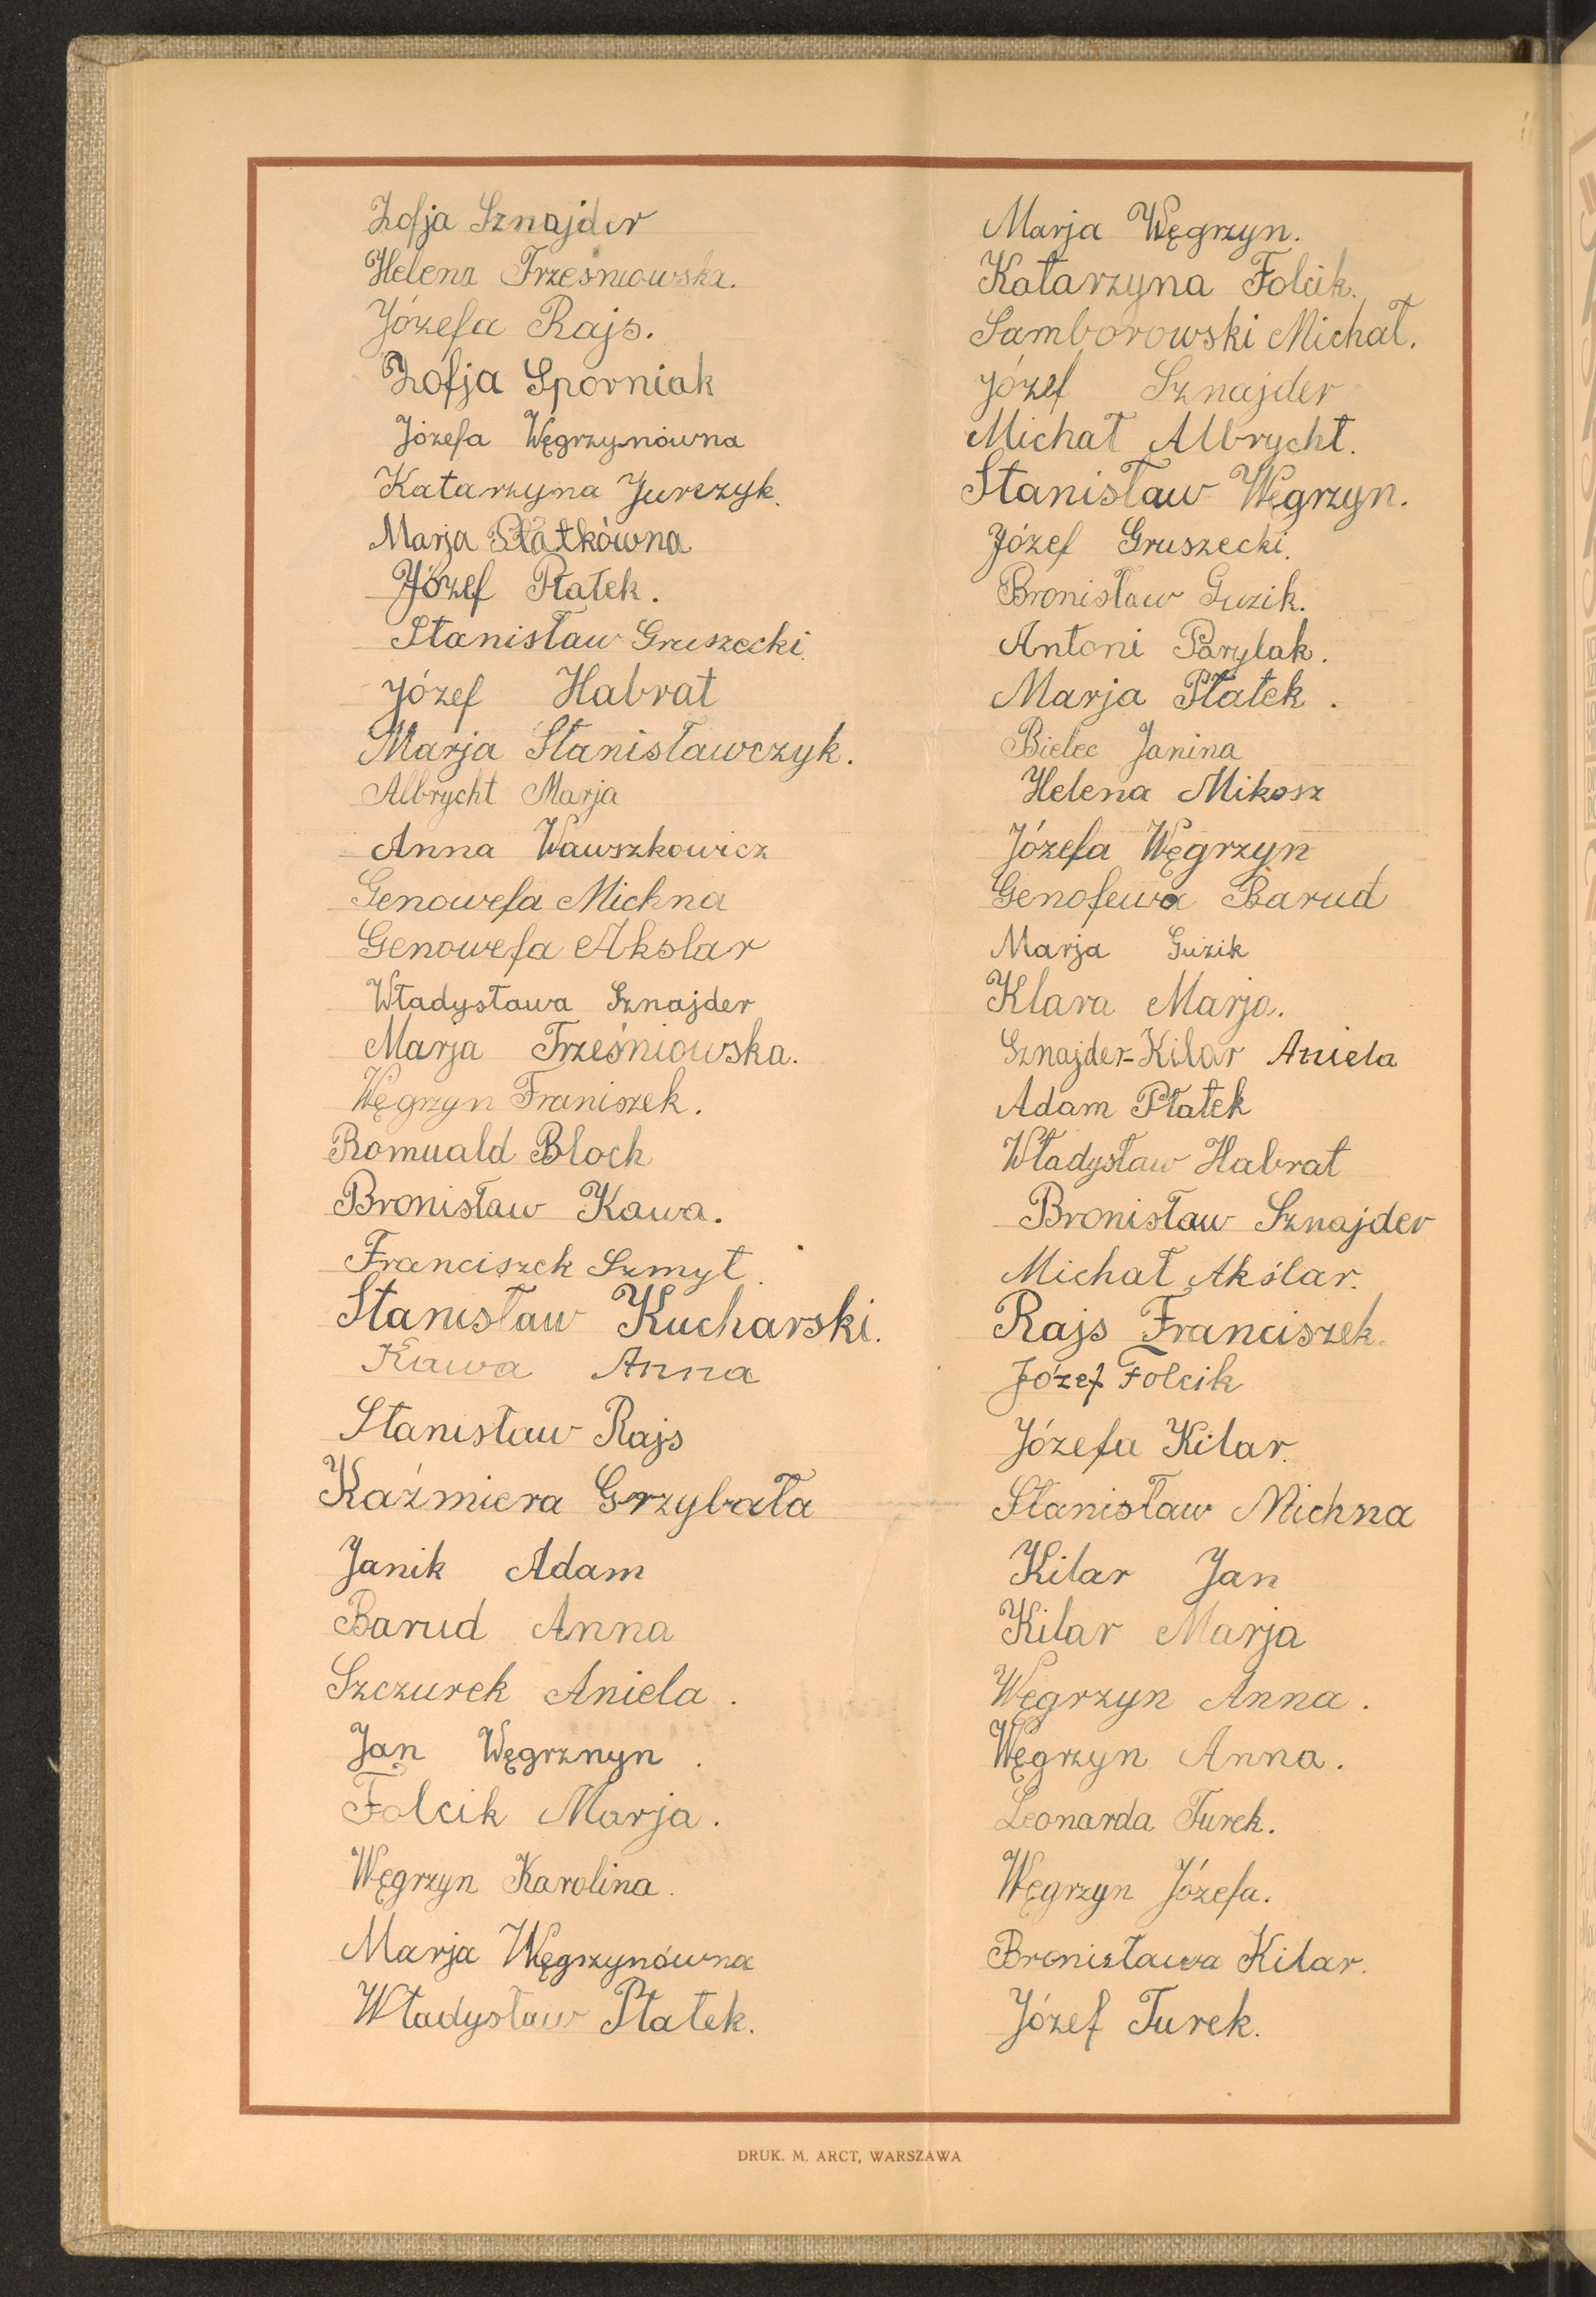 Zofja Sznajder
Helena Trześniowska.
Józefa Rajs.
Zofja Sporniak
Józefa Węgrzynówna
Katarzyna Jurczyk.
Marja Płatkówna
Józef Płatek.
Stanisław Gruszecki.
Józef Habrat
Marja Stanisławczyk.
Albrycht Marja
Anna Wawszkowicz
Genowefa Michna
Genowefa Akslar
Władysława Sznajder
Marja Trześniowska.
Węgrzyn Franiszek.
Romuald Bloch
Bronisław Kawa.
Franciszek Szmyt.
Stanisław Kucharski.
Kawa Anna
Stanisław Rajs
Kaźmiera Grzybała
Janik Adam
Barud Anna
Szczurek Aniela.
Jan Węgrznyn.
Folcik Marja.
Węgrzyn Karolina.
Marja Węgrzynówna
Władysław Płatek.
Marja Węgrzyn.
Katarzyna Folcik.
Samborowski Michał.
Józef Sznajder
Michał Albrycht.
Stanisław Węgrzyn.
Józef Gruszecki.
Bronisław Guzik.
Antoni Parylak.
Marja Płatek.
Bielec Janina
Helena Mikosz
Józefa Węgrzyn
Genofewa Barud
Marja Guzik
Klara Marja.
Sznajder-Kilar Aniela
Adam Płatek
Władysław Habrat
Bronisław Sznajder
Michał Akślar.
Rajs Franciszek.
Józef Folcik
Józefa Kilar.
Stanisław Michna
Kilar Jan
Kilar Marja
Węgrzyn Anna.
Węgrzyn Anna.
Leonarda Turek.
Węgrzyn Józefa.
Bronisława Kilar.
Józef Turek.
DRUK. M. ARCT, WARSZAWA